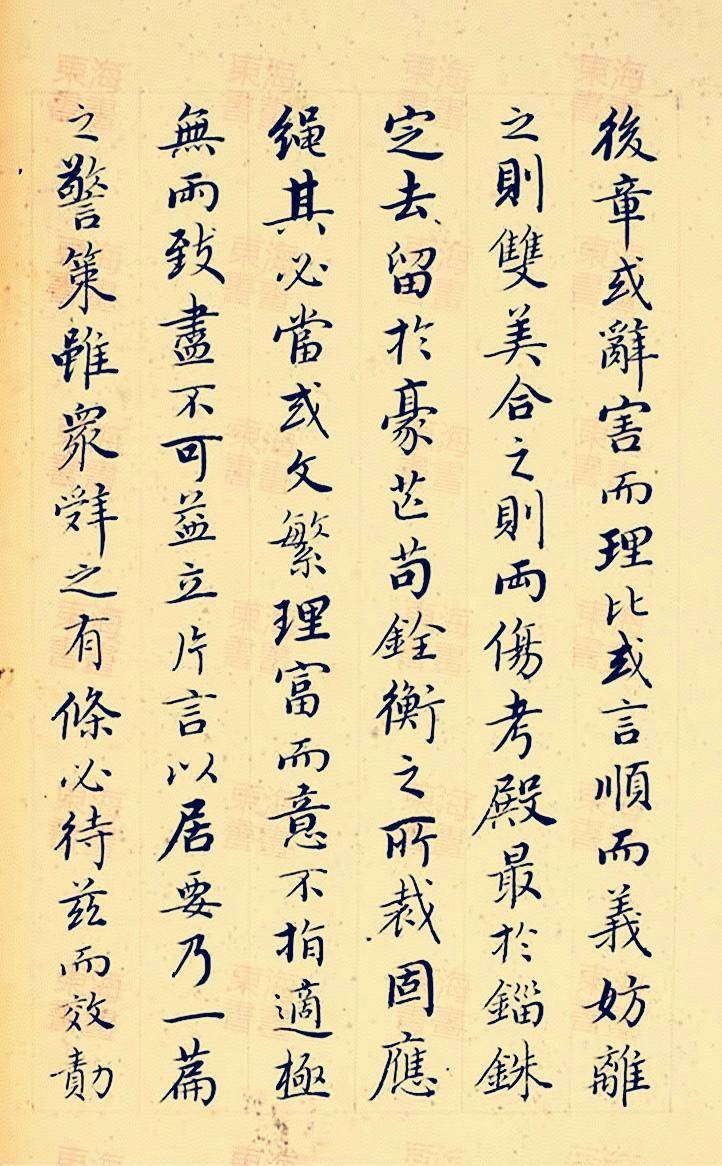 後章或辭害而理比或言順而義妨離
之則雙美合之則兩傷考殿最於錙銖
定去留於豪芒苟銓衡之所裁固應
繩其必當或文繁理富而意不指適極
無兩致盡不可益立片言以居要乃一篇
之警策雖衆辭之有條必待茲而效勣
東海書畫